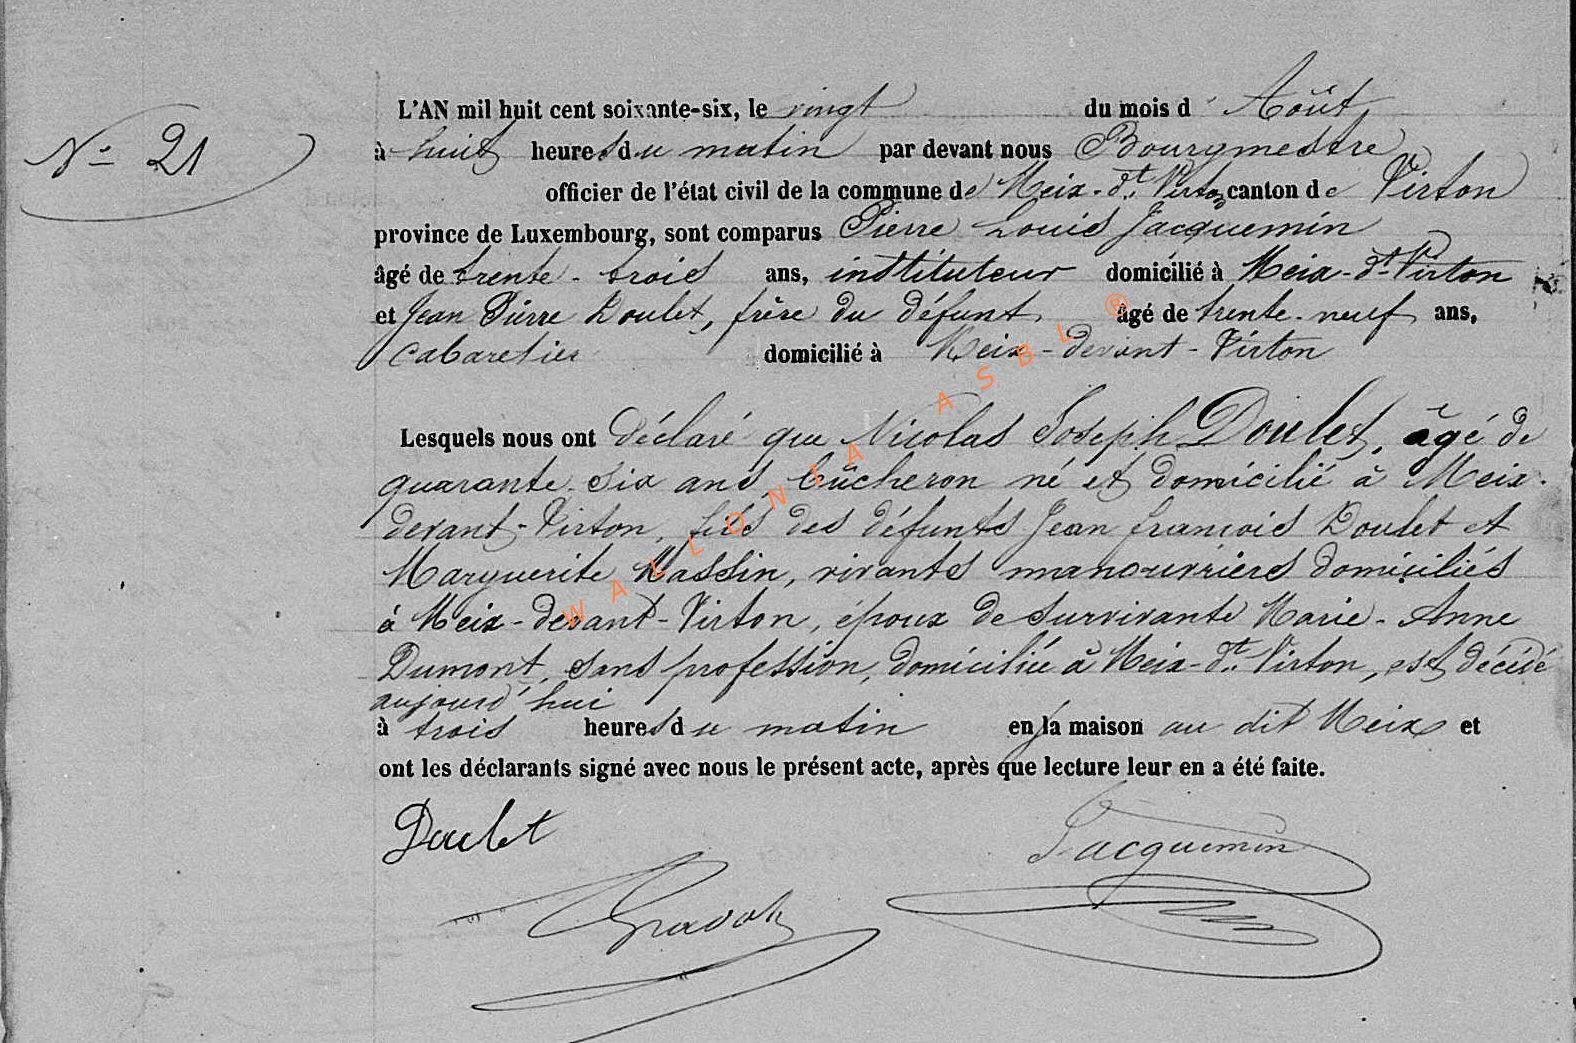 N° 21
L'AN mil huit cent soixante-six, le vingt du mois d' Août
à huit heures du matin par devant nous Bourgmestre
officier de l'état civil de la commune de Meix-dt. Virton canton de Virton
province de Luxembourg, sont comparus Pierre Louis Jacquemin
âgé de trente-trois ans, instituteur domicilié à Meix-dt-Virton
et Jean Pierre Doulet, frère du défunt, âgé de trente-neuf ans,
cabaretier domicilié à Meix-devant-Virton
Lesquels nous ont déclaré que Nicolas Joseph Doulet, âgé de
quarante-six ans, bûcheron né et domicilié à Meix-
devant-Virton, fils des défunts Jean françois Doulet et
Marguerite Massin, vivants manouvriers domiciliés
à Meix-devant-Virton, époux de survivante Marie-Anne
Dumont, sans profession, domiciliée à Meix-dt. Virton, est décédé
aujourd'hui
à trois heures du matin en la maison au dit Meix et
ont les déclarants signé avec nous le présent acte, après que lecture leur en a été faite.
Doulet
Jacquemin
WALLONIA ASBL ®